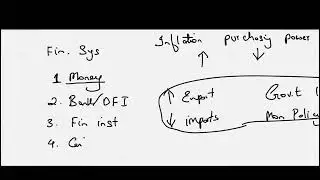 Fin. Sys
1 Money
2. Bank/OFI
3. Fin inst
4.
Inflation purchasing power
↑ Export Govt
↓ imports Mon Polic